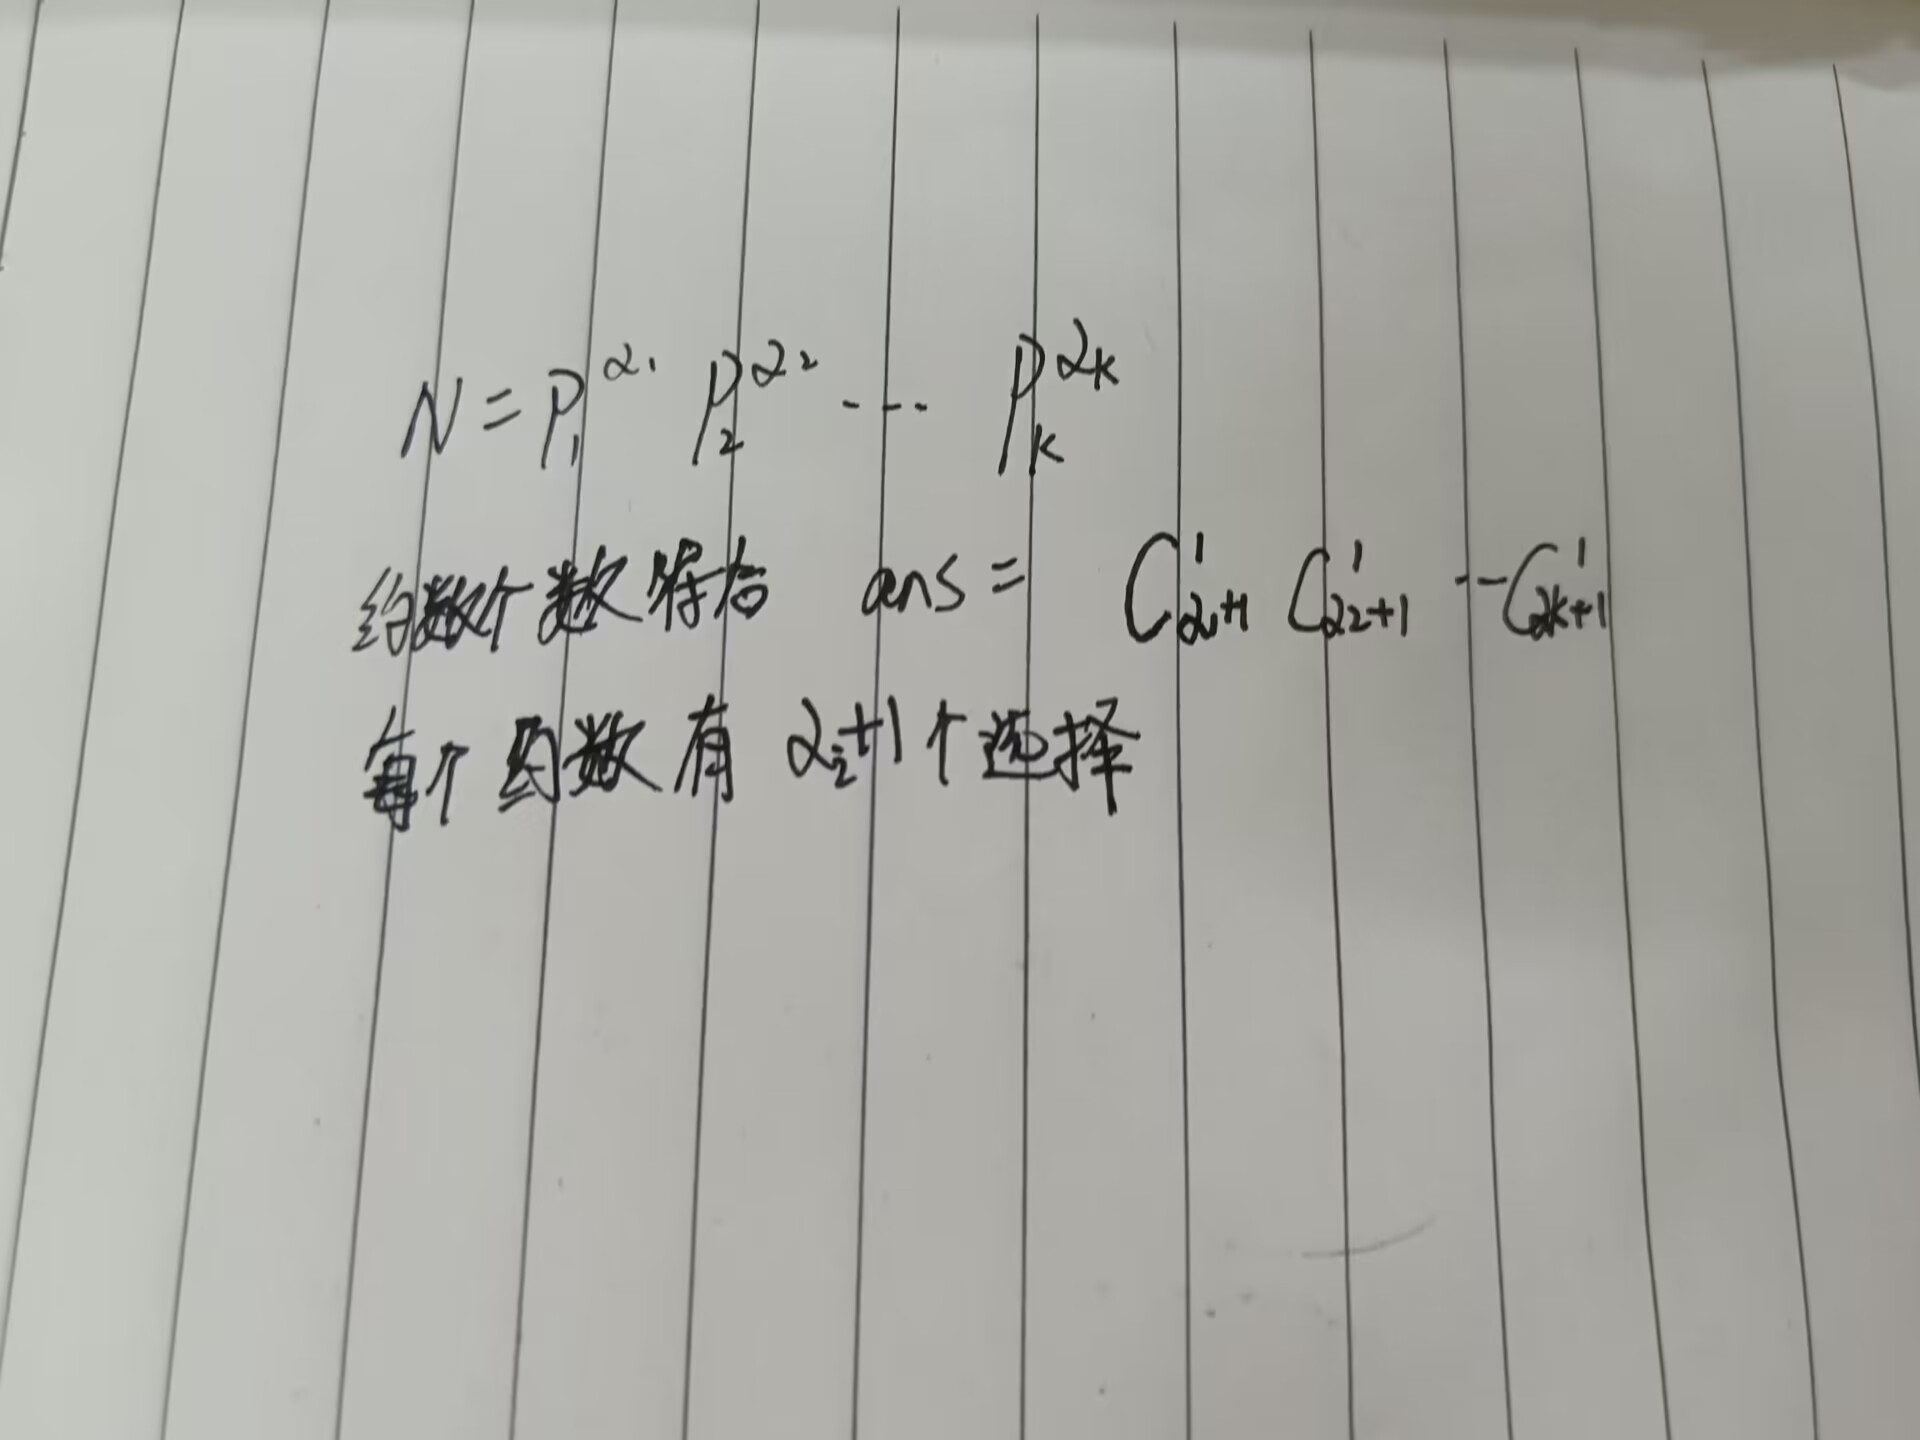 N = P₁^α₁ P₂^α₂ ---- P_k^α_k
约数个数符合 ans = C¹_α₁+1 C¹_α₂+1 --- C¹_αk+1
每个约数有 αᵢ+1个选择